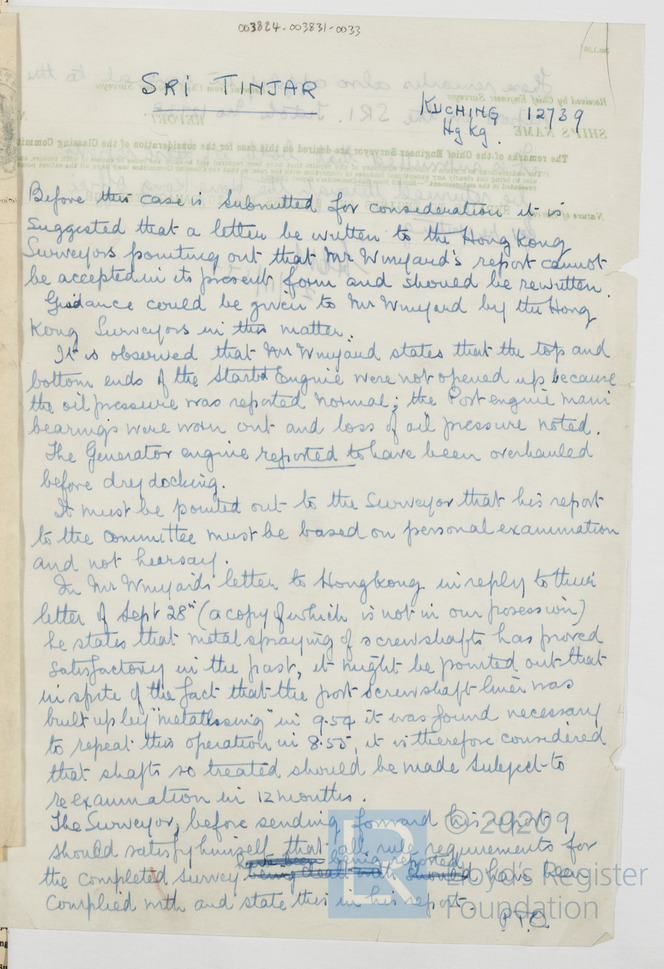 003824-003831-0033
SRI TINJAR
KUCHING 12739
Hg Kg.
Before this case is submitted for consideration it is
suggested that a letter be written to the Hong Kong
Surveyors pointing out that Mr Winyard's report cannot
be accepted in its present form and should be rewritten.
Guidance could be given to Mr Winyard by the Hong
Kong Surveyors in this matter.
It is observed that Mr Winyard states that the top and
bottom ends of the Starbd Engine were not opened up because
the oil pressure was reported normal; the Port engine main
bearings were worn out and loss of oil pressure noted.
The Generator engine reported to have been overhauled
before drydocking.
It must be pointed out to the Surveyor that his report
to the Committee must be based on personal examination
and not hearsay.
In Mr Winyards letter to Hongkong in reply to their
letter of Sept 28th (a copy of which is not in our posession)
he states that metal spraying of screwshafts has proved
satisfactory in the past, it might be pointed out that
in spite of the fact that the port screwshaft liner was
built up by "metallising" in 9.54 it was found necessary
to repeat this operation in 8.55, it is therefore considered
that shafts so treated should be made subject to
reexamination in 12 months.
The Surveyor, before sending forward his report 9
should satisfy himself that all rule requirements for
the completed survey being dealt with should have been
complied with and state this in his report.
P.T.O.
© 2020
Lloyd's Register
Foundation
LR